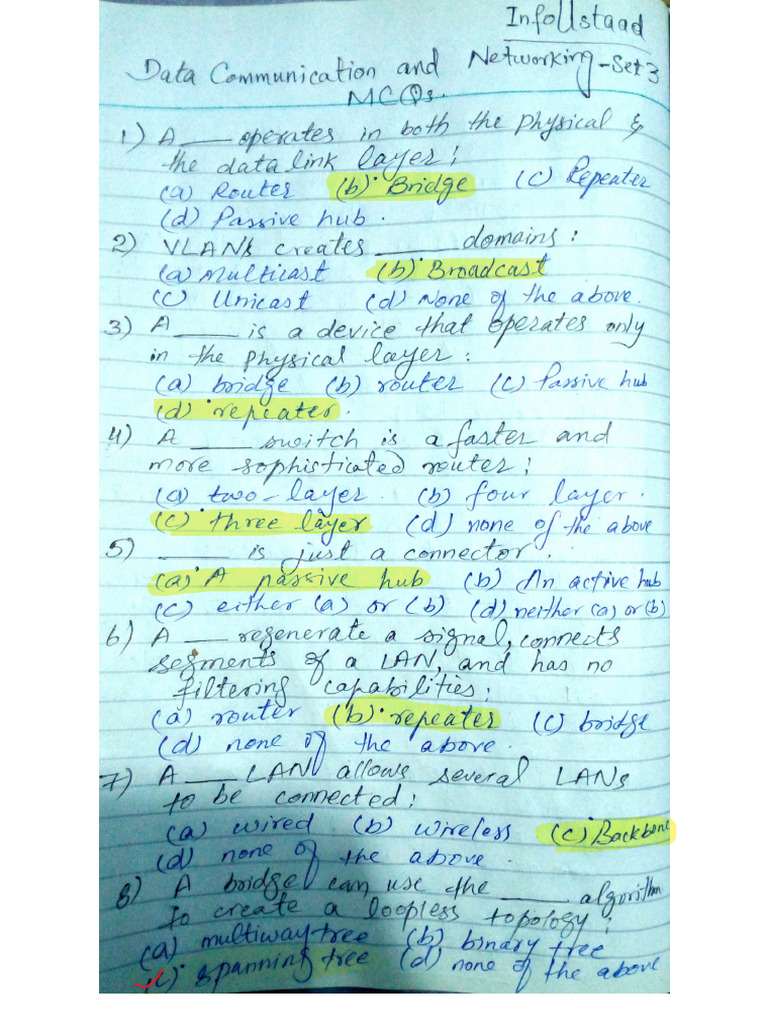 InfoUstaad
Data Communication and Networking-Set 3
MCQs.
1) A ___ operates in both the physical &
the data link layer;
(a) Router (b) Bridge (c) Repeater
(d) Passive hub.
2) VLANs creates _____ domains:
(a) Multicast (b) Broadcast
(c) Unicast (d) None of the above.
3) A ____ is a device that operates only
in the physical layer:
(a) bridge (b) router (c) Passive hub
(d) repeater.
4) A ____ switch is a faster and
more sophisticated router;
(a) two-layer. (b) four layer.
(c) three layer (d) none of the above
5) ____ is just a connector.
(a) A passive hub (b) An active hub
(c) either (a) or (b) (d) neither (a) or (b)
6) A ___ regenerate a signal, connects
segments of a LAN, and has no
filtering capabilities:
(a) router (b) repeater (c) bridge
(d) none of the above.
7) A ___ LAN allows several LANs
to be connected;
(a) wired (b) wireless (c) Backbone
(d) none of the above.
8) A bridge can use the ____ algorithm
to create a loopless topology;
(a) multiway tree (b) binary tree
(c) spanning tree (d) none of the above